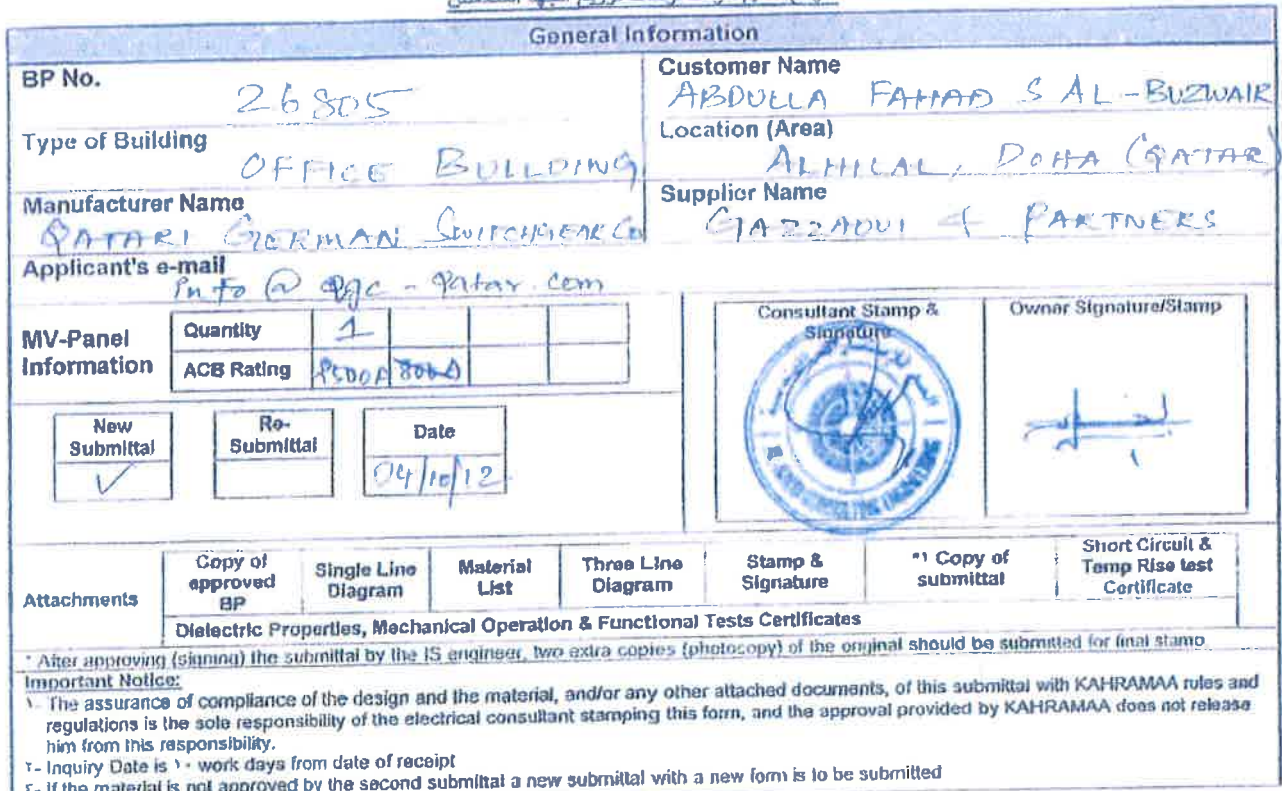 General Information
BP No.
26805
Customer Name
ABDULLA FAHAD S AL-BUZWAIR
Type of Building
OFFICE BUILDING
Location (Area)
ALHILAL, DOHA (QATAR)
Manufacturer Name
QATARI GERMAN SWITCHGEAR Co
Supplier Name
GAZZAOUI & PARTNERS
Applicant's e-mail
info @ qgc - qatar.com
MV-Panel Information
Quantity
1
ACB Rating
800A
Consultant Stamp & Signature
CONSULTING ENGINEERS
Owner Signature/Stamp
New Submittal
✓
Re-Submittal
Date
04/10/12
Attachments
Copy of approved BP
Single Line Diagram
Material List
Three Line Diagram
Stamp & Signature
*١ Copy of submittal
Short Circuit & Temp Rise test Certificate
Dielectric Properties, Mechanical Operation & Functional Tests Certificates
* After approving (signing) the submittal by the IS engineer, two extra copies (photocopy) of the original should be submitted for final stamp
Important Notice:
١- The assurance of compliance of the design and the material, and/or any other attached documents, of this submittal with KAHRAMAA rules and
regulations is the sole responsibility of the electrical consultant stamping this form, and the approval provided by KAHRAMAA does not release
him from this responsibility.
٢- Inquiry Date is ١٠ work days from date of receipt
٣- If the material is not approved by the second submittal a new submittal with a new form is to be submitted